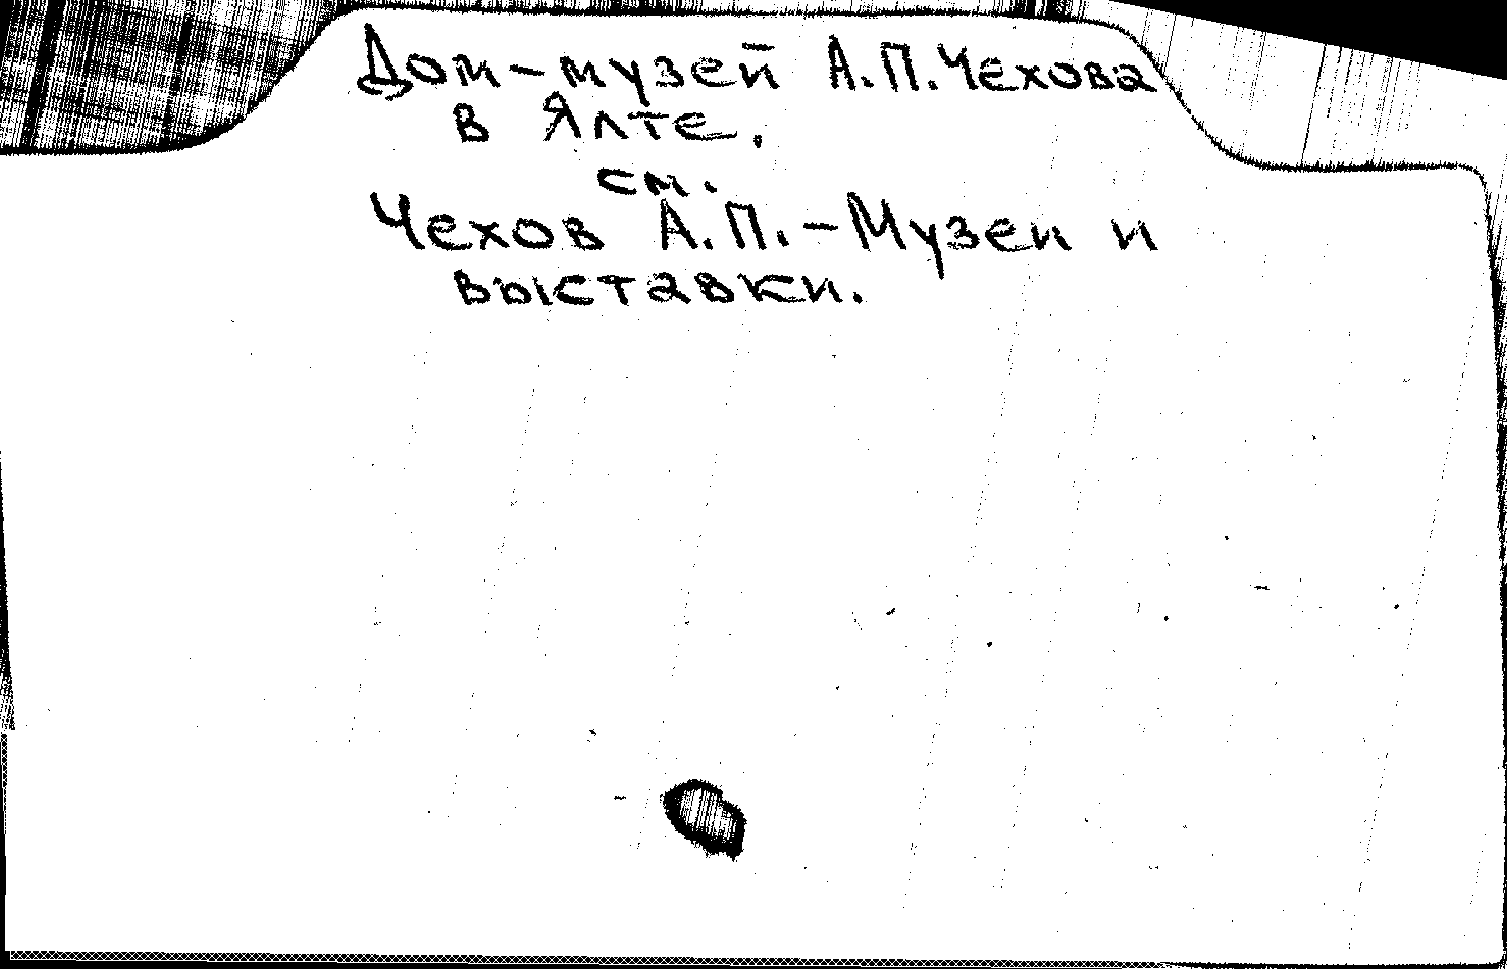 Дом-музей А.П.Чехова
в Ялте.
см.
Чехов А.П.-Музеи и
выставки.